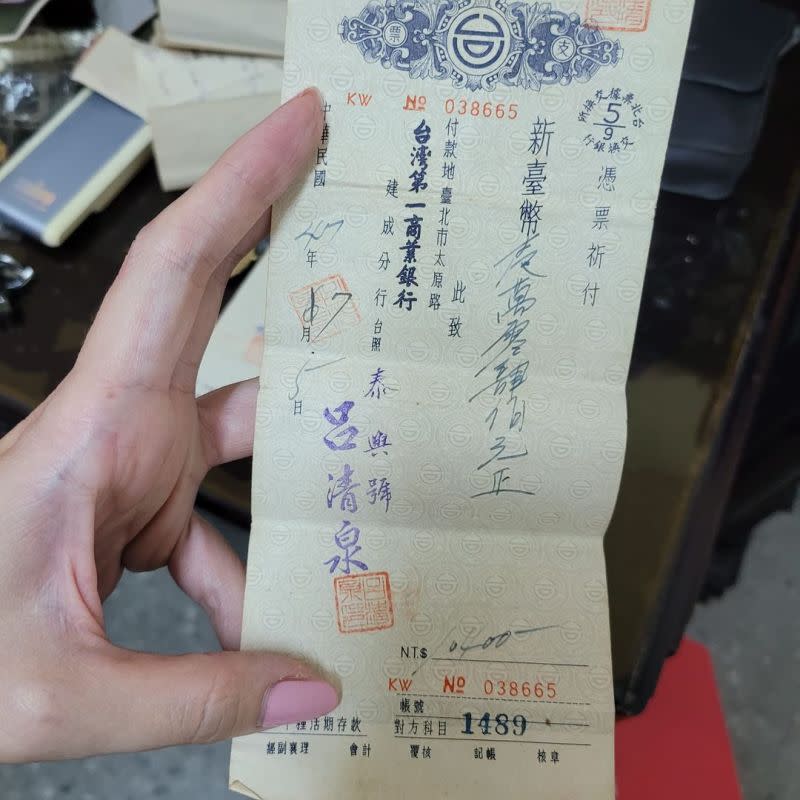 票 支
KW № 038665
台北票據交換所
5/9
交換銀行
憑票祈付
新臺幣壹萬零肆佰元正
此致
付款地臺北市太原路
台灣第一商業銀行
建成分行 台照
泰興號
呂清泉
中華民國
47年
月
5日
NT.$ 10400—
KW № 038665
帳號 1489
種活期存款
對方科目
經副襄理 會計 覆核 記帳 核章